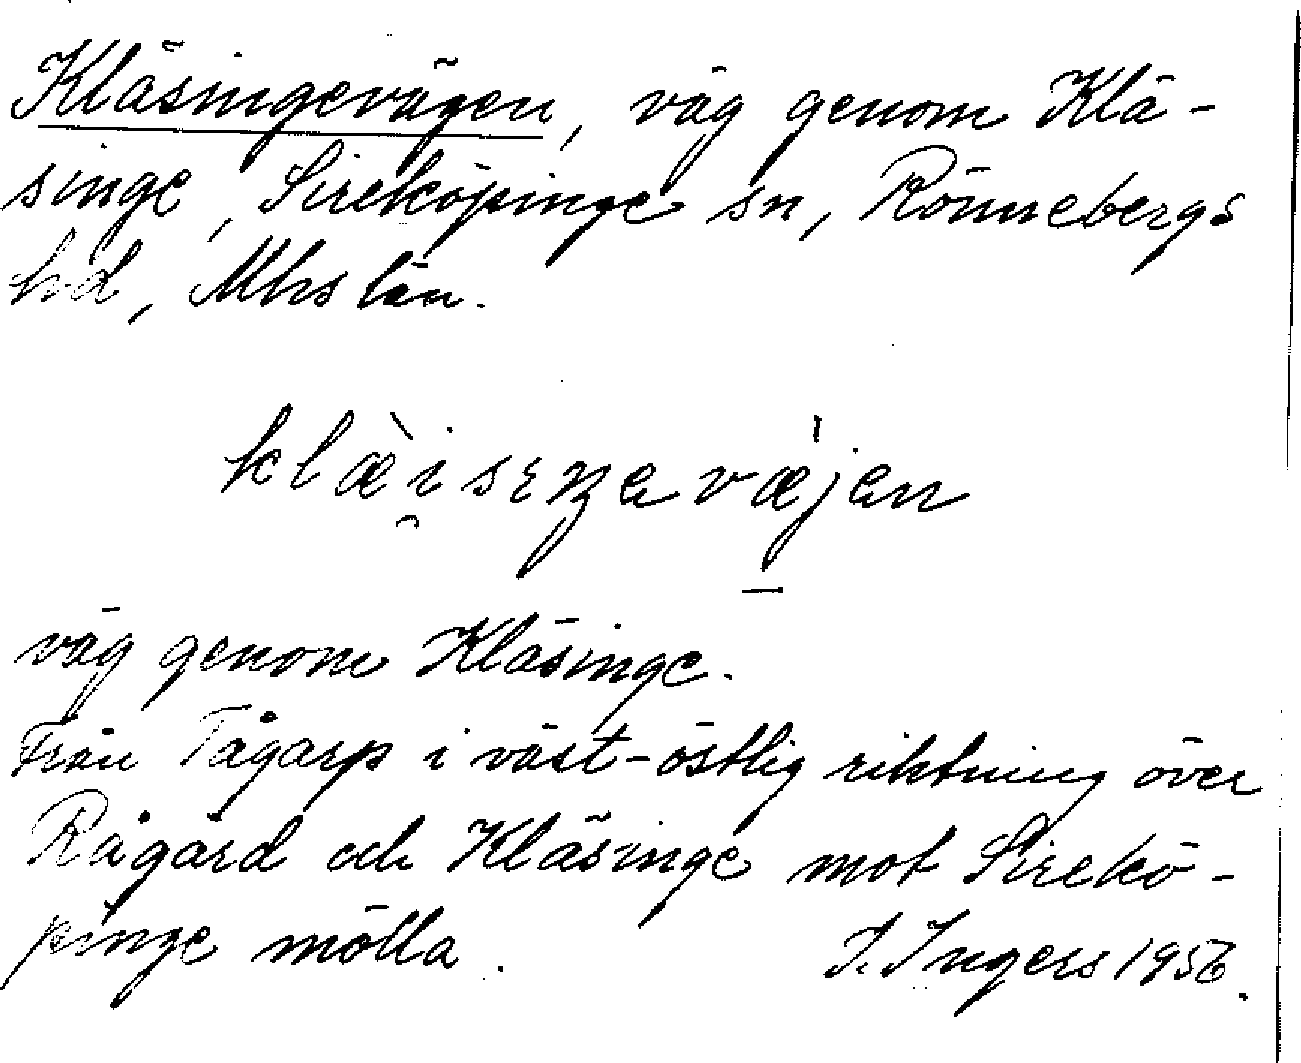 Kläsingevägen, väg genom Klä-
singe, Sireköpinge sn, Rönnebergs
hd, Mhs län.
klæ̀i̯sɩŋavæ̀jen
väg genom Kläsinge.
Från Tågarp i väst-östlig riktning över
Rågård och Kläsinge mot Sirekö-
pinge mölla. I. Ingers 1956.